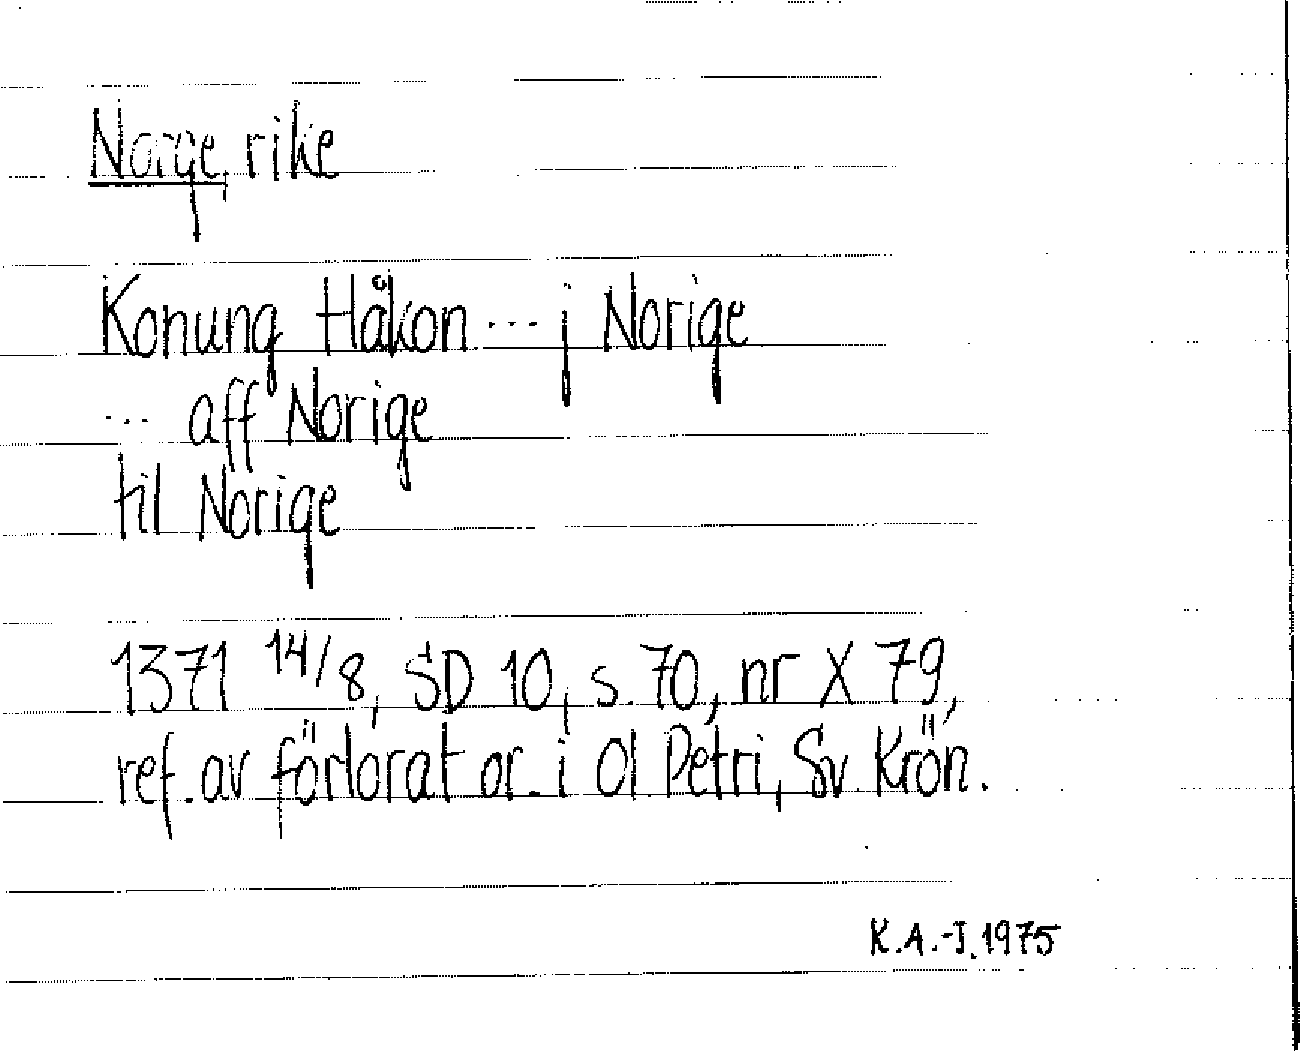 Norge, rike
Konung Håkon ... j Norige
... aff Norige
til Norige
1371 14/8, SD 10, s. 70, nr X 79,
ref. av förlorat or. i Ol. Petri, Sv. Krön.
K.A.-J. 1975